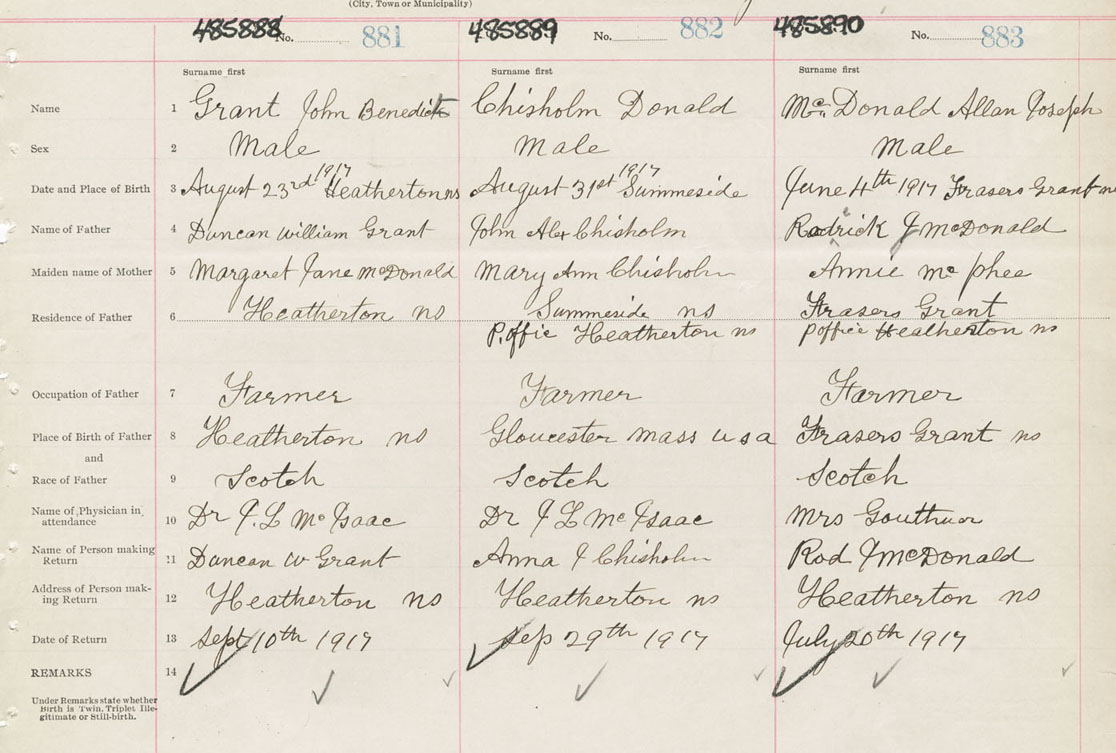 (City, Town or Municipality)
485888 No. 881 485889 No. 882 485890 No. 883
Surname first Surname first Surname first
Name 1 Grant John Benedict Chisholm Donald Mc. Donald Allan Joseph
Sex 2 Male Male Male
Date and Place of Birth 3 August 23rd 1917 Heatherton ns August 31st 1917 Summeside June 4th 1917 Frasers Grant ns
Name of Father 4 Duncan William Grant John Alex Chisholm Rodrick J McDonald
Maiden name of Mother 5 Margaret Jane McDonald Mary Ann Chisholm Annie Mc phee
Residence of Father 6 Heatherton ns Summeside ns Frasers Grant
P.offie Heatherton ns poffice Heatherton ns
Occupation of Father 7 Farmer Farmer Farmer
Place of Birth of Father 8 Heatherton ns Gloucester mass usa Frasers Grant ns
and
Race of Father 9 Scotch Scotch Scotch
Name of Physician in
attendance 10 Dr J.L Mc Isaac Dr J L Mc Isaac Mrs
Name of Person making
Return 11 Duncan W Grant Anna J Chisholm Rod J McDonald
Address of Person mak-
ing Return 12 Heatherton ns Heatherton ns Heatherton ns
Date of Return 13 Sept 10th 1917 Sep 29th 1917 July 20th 1917
REMARKS 14
Under Remarks state whether
Birth is Twin, Triplet Ille-
gitimate or Still-birth.